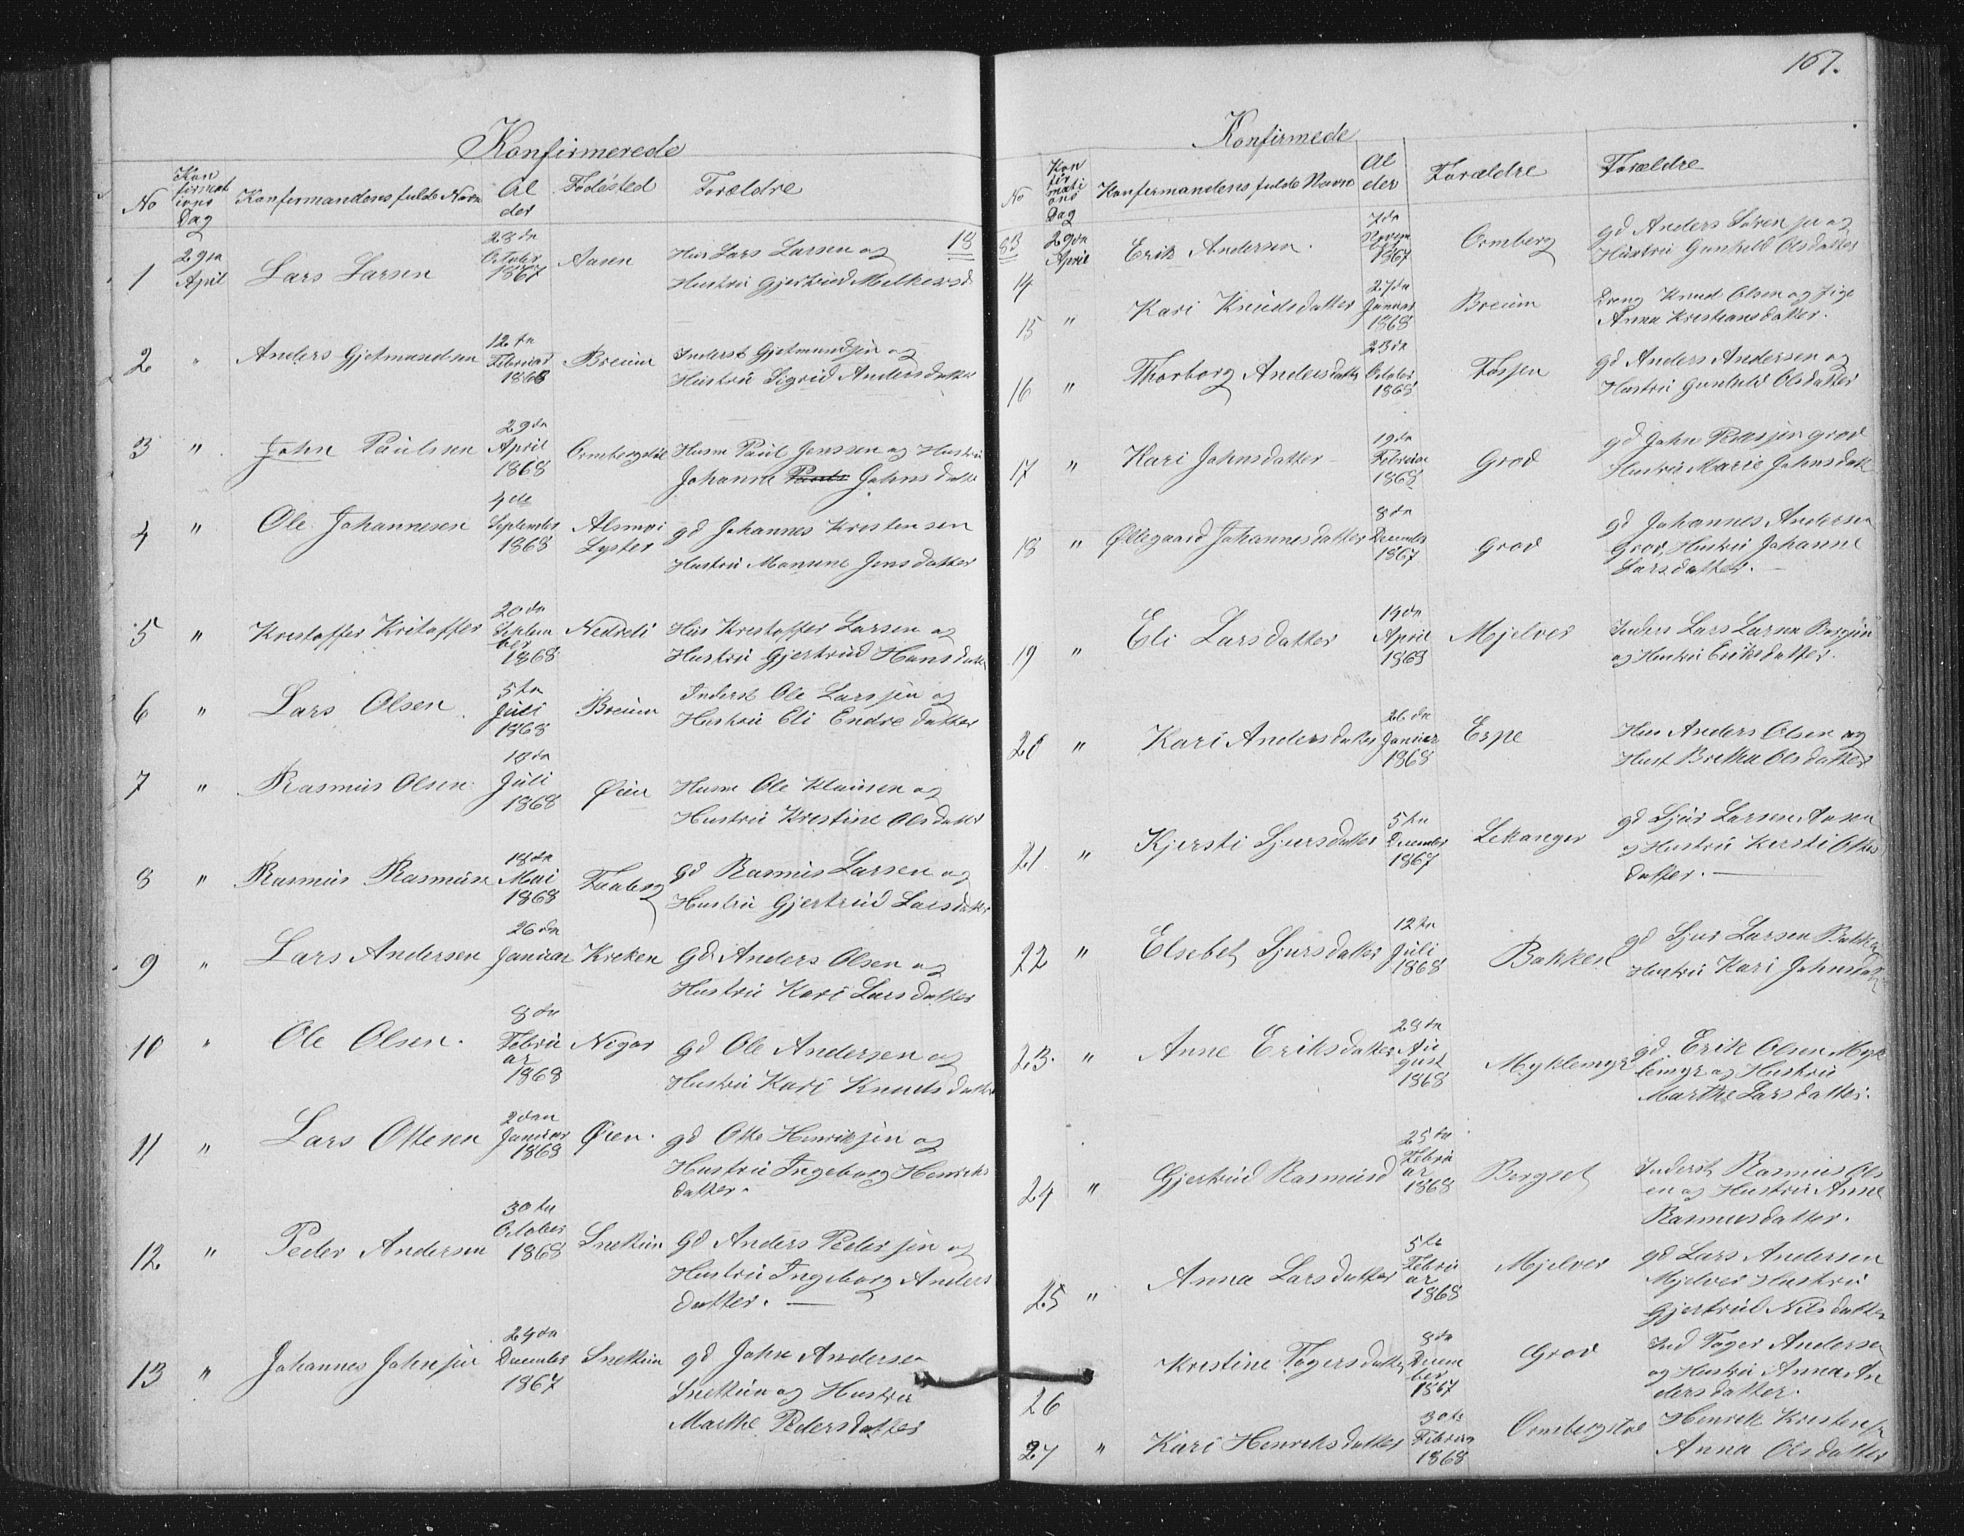 167.
Konfirmerede
No
Kon
firmat
ions
Dag
Konfirmandens fulde Navn
Al
der
Fødested
Forældre
18
1
29de
April
Lars Larsen
28de
October
1867
Aasen
Hus Lars Larsen og
Hustru Gjertrud Melkersd
2
"
Anders Gjetmundsen
12te
Februar
1868
Breum
Inderst Gjetmundsen og
Hustru Sigrid Andersdatter
3
"
John Paulsen
29de
April
1868
Ormbergstøl
Husm Paul Jenssen og Hustru
Johanne Johnsdatter
4
"
Ole Johannesen
4de
September
1868
Lyster
gd Johannes Kristensen
Hustru Jensdatter
5
"
Kristoffer Kritoffer
20de
Septem
ber
1868
Nedreli
Hus Kristoffer Larsen og
Hustru Gjertrud Hansdatter
6
"
Lars Olsen
5te
Juli
1868
Breum
Inderst Ole Larssen og
Hustru Eli Endredatter
7
"
Rasmus Olsen
18de
Juli
1868
Øien
Husm Ole Klausen og
Hustru Kristine Olsdatter
8
"
Rasmus Rasmusen
18de
Mai
1868
Faaberg
gd Rasmus Larsen og
Hustru Gjertrud Larsdatter
9
"
Lars Andersen
26de
Januar
Kreken
Gd Anders Olsen og
Hustru Kari Larsdatter
10
"
Ole Olsen.
8de
Febru
ar
1868
Nigar
gd Ole Andersen og
Hustru Kari Knudsdatter
11
"
Lars Ottesen
2den
Januar
1868
Øien.
gd Otte Henriksen og
Hustru Ingeborg Henriks
datter.
12
"
Peder Andersen
30te
October
1868
Snetun
Gd Anders Pedersen og
Hustru Ingeborg Anders
datter. —
13
"
Johannes Johnsen
24de
December
1867
Snetun
gd John Andersen
Snetun og Hustru
Marthe Pedersdatter
Konfirmede
No
Kon
fir
mati
ons
Dag
Konfirmandens fulde Navn
Al
der
Forældre
Forældre
83
29de
April
Erik Andersen.
7de
Novem
1867
Ormberg
gd Anders Sørensen og
Hustru Gunhild Olsdatter
14
15
"
Kari Knudsdatter
27de
Januar
1868
Breum
Dreng Knud Olsen og Pige
Anna Kristiansdatter.
16
"
Thorborg Andersdatter
23de
October
1868
Fossen
gd Anders Andersen og
Hustru Gunhild Olsdatter
17
"
Kari Johnsdatter
19de
Februar
1868
Grov
gd John Grov
Hustru Marie Johnsdatt
18
"
Øllegaard Johannesdatter
8de
December
1867
Grov
gd Johannes Andersen
Grov, Hustru Johanne
Larsdatter. —
19
"
Eli Larsdatter
14de
April
1868
Mjelver
Inders Lars Larsen
og Hustru Eriksdatter.
20
"
Kari Andersdatter
26de
Januar
1868
Espe
Hus Anders Olsen og
Hust Britha Olsdatter
21
"
Kjersti Sjursdatter
5te
December
1867
Lekanger
gd Sjur Larsen Aasen
og Hustru Kersti Ottes
datter. —
22
"
Elsebet Sjursdatter
12te
Juli
1868
Bakken
gd Sjur Larsen Bakke
Hustru Kari Johnsdatt
23.
"
Anne Eriksdatter
28de
Au
gust
1868
Myklemyr
gd Erik Olsen Myk
lemyr og Hustru
Marthe Larsdatter.
24
"
Gjertrud Rasmusd
25te
Febru
ar
1868
Bergset
Inderst Rasmus Ols
en og Hustru Anne
Rasmusdatter.
25
"
Anna Larsdatter
5te
Febru
ar
1868
Mjelver
gd Lars Andersen
Mjelver Hustru
Gjertrud Nilsdatter
26
Kristine Tøgersdatter
8de
Decem
ber
1867
Grov
Ind Tøger Andersen
og Hustru Anna An
dersdatter.
27
"
Kari Henriksdatter
30te
Februar
1868
Ormbergstøl
Henrik Kristens
Anna Olsdatter